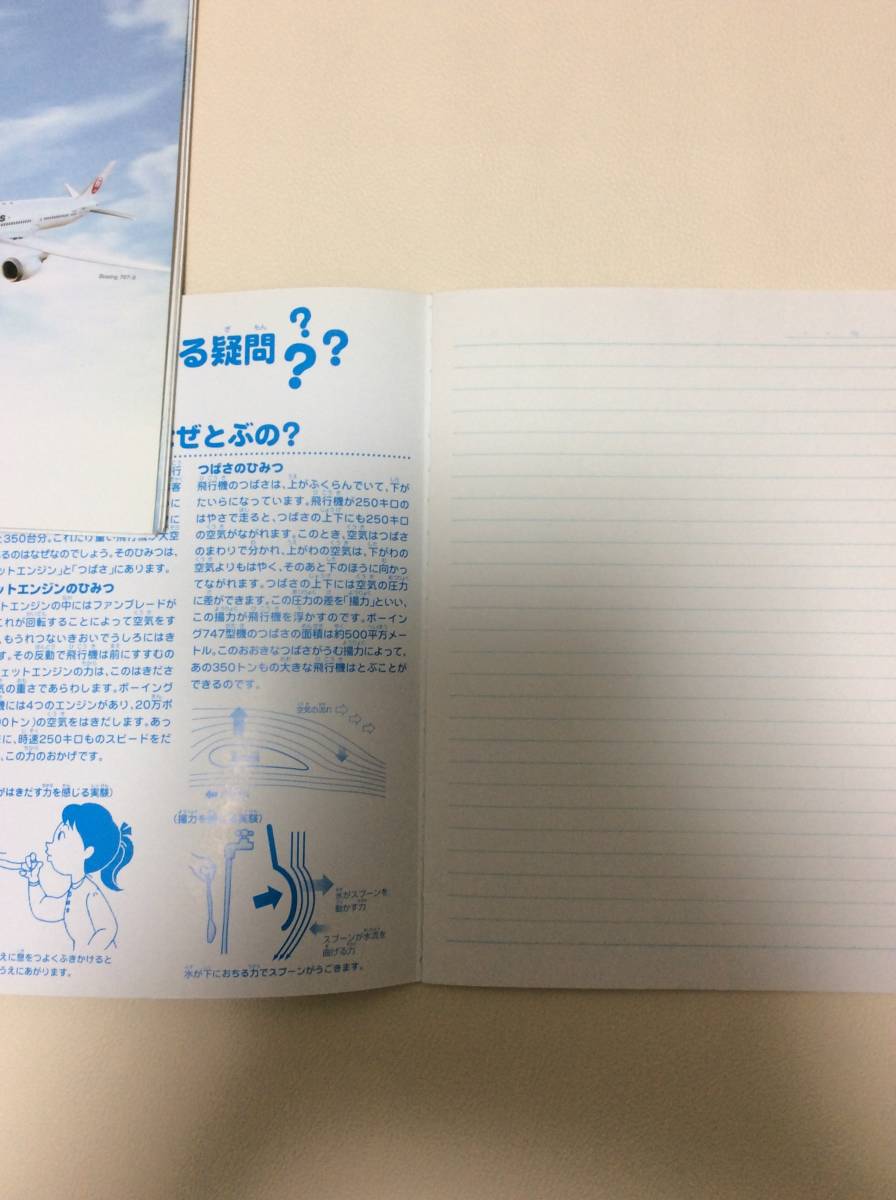 Boeing 767-3
る疑問???
ぜとぶの?
350台分。これだけ重い飛行機が大空
るのはなぜなのでしょう。そのひみつは、
ットエンジン」と「つばさ」にあります。
ットエンジンのひみつ
トエンジンの中にはファンブレードが
これが回転することによって空気をす
、もうれつないきおいでうしろにはき
す。その反動で飛行機は前にすすむの
ェットエンジンの力は、このはきださ
気の重さであらわします。ボーイング
機には4つのエンジンがあり、20万ポ
0トン)の空気をはきだします。あっ
に、時速250キロものスピードをだ
、この力のおかげです。
がはきだす力を感じる実験)
えに息をつよくふきかけると
うえにあがります。
つばさのひみつ
飛行機のつばさは、上がふくらんでいて、下が
たいらになっています。飛行機が250キロの
はやさで走ると、つばさの上下にも250キロ
の空気がながれます。このとき、空気はつばさ
のまわりで分かれ、上がわの空気は、下がわの
空気よりもはやく、そのあと下のほうに向かっ
てながれます。つばさの上下には空気の圧力
に差ができます。この圧力の差を「揚力」といい、
この揚力が飛行機を浮かすのです。ボーイン
グ747型機のつばさの面積は約500平方メー
トル。このおおきなつばさがうむ揚力によって、
あの350トンもの大きな飛行機はとぶことが
できるのです。
空気の流れ
(揚力を感じる実験)
水がスプーンを
動かす力
スプーンが水流を
曲げる力
水が下におちる力でスプーンがうごきます。